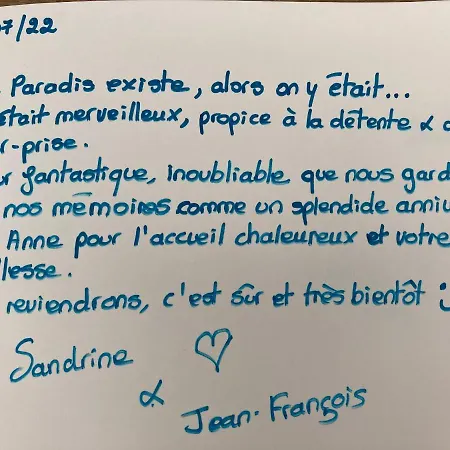 07/22
Paradis existe, alors on y était...
était merveilleux, propice à la détente &
r-prise.
fantastique, inoubliable que nous gard
nos mémoires comme un splendide anniv
Anne pour l'accueil chaleureux et votre
llesse.
reviendrons, c'est sûr et très bientôt :)
Sandrine ♡
&
Jean-François